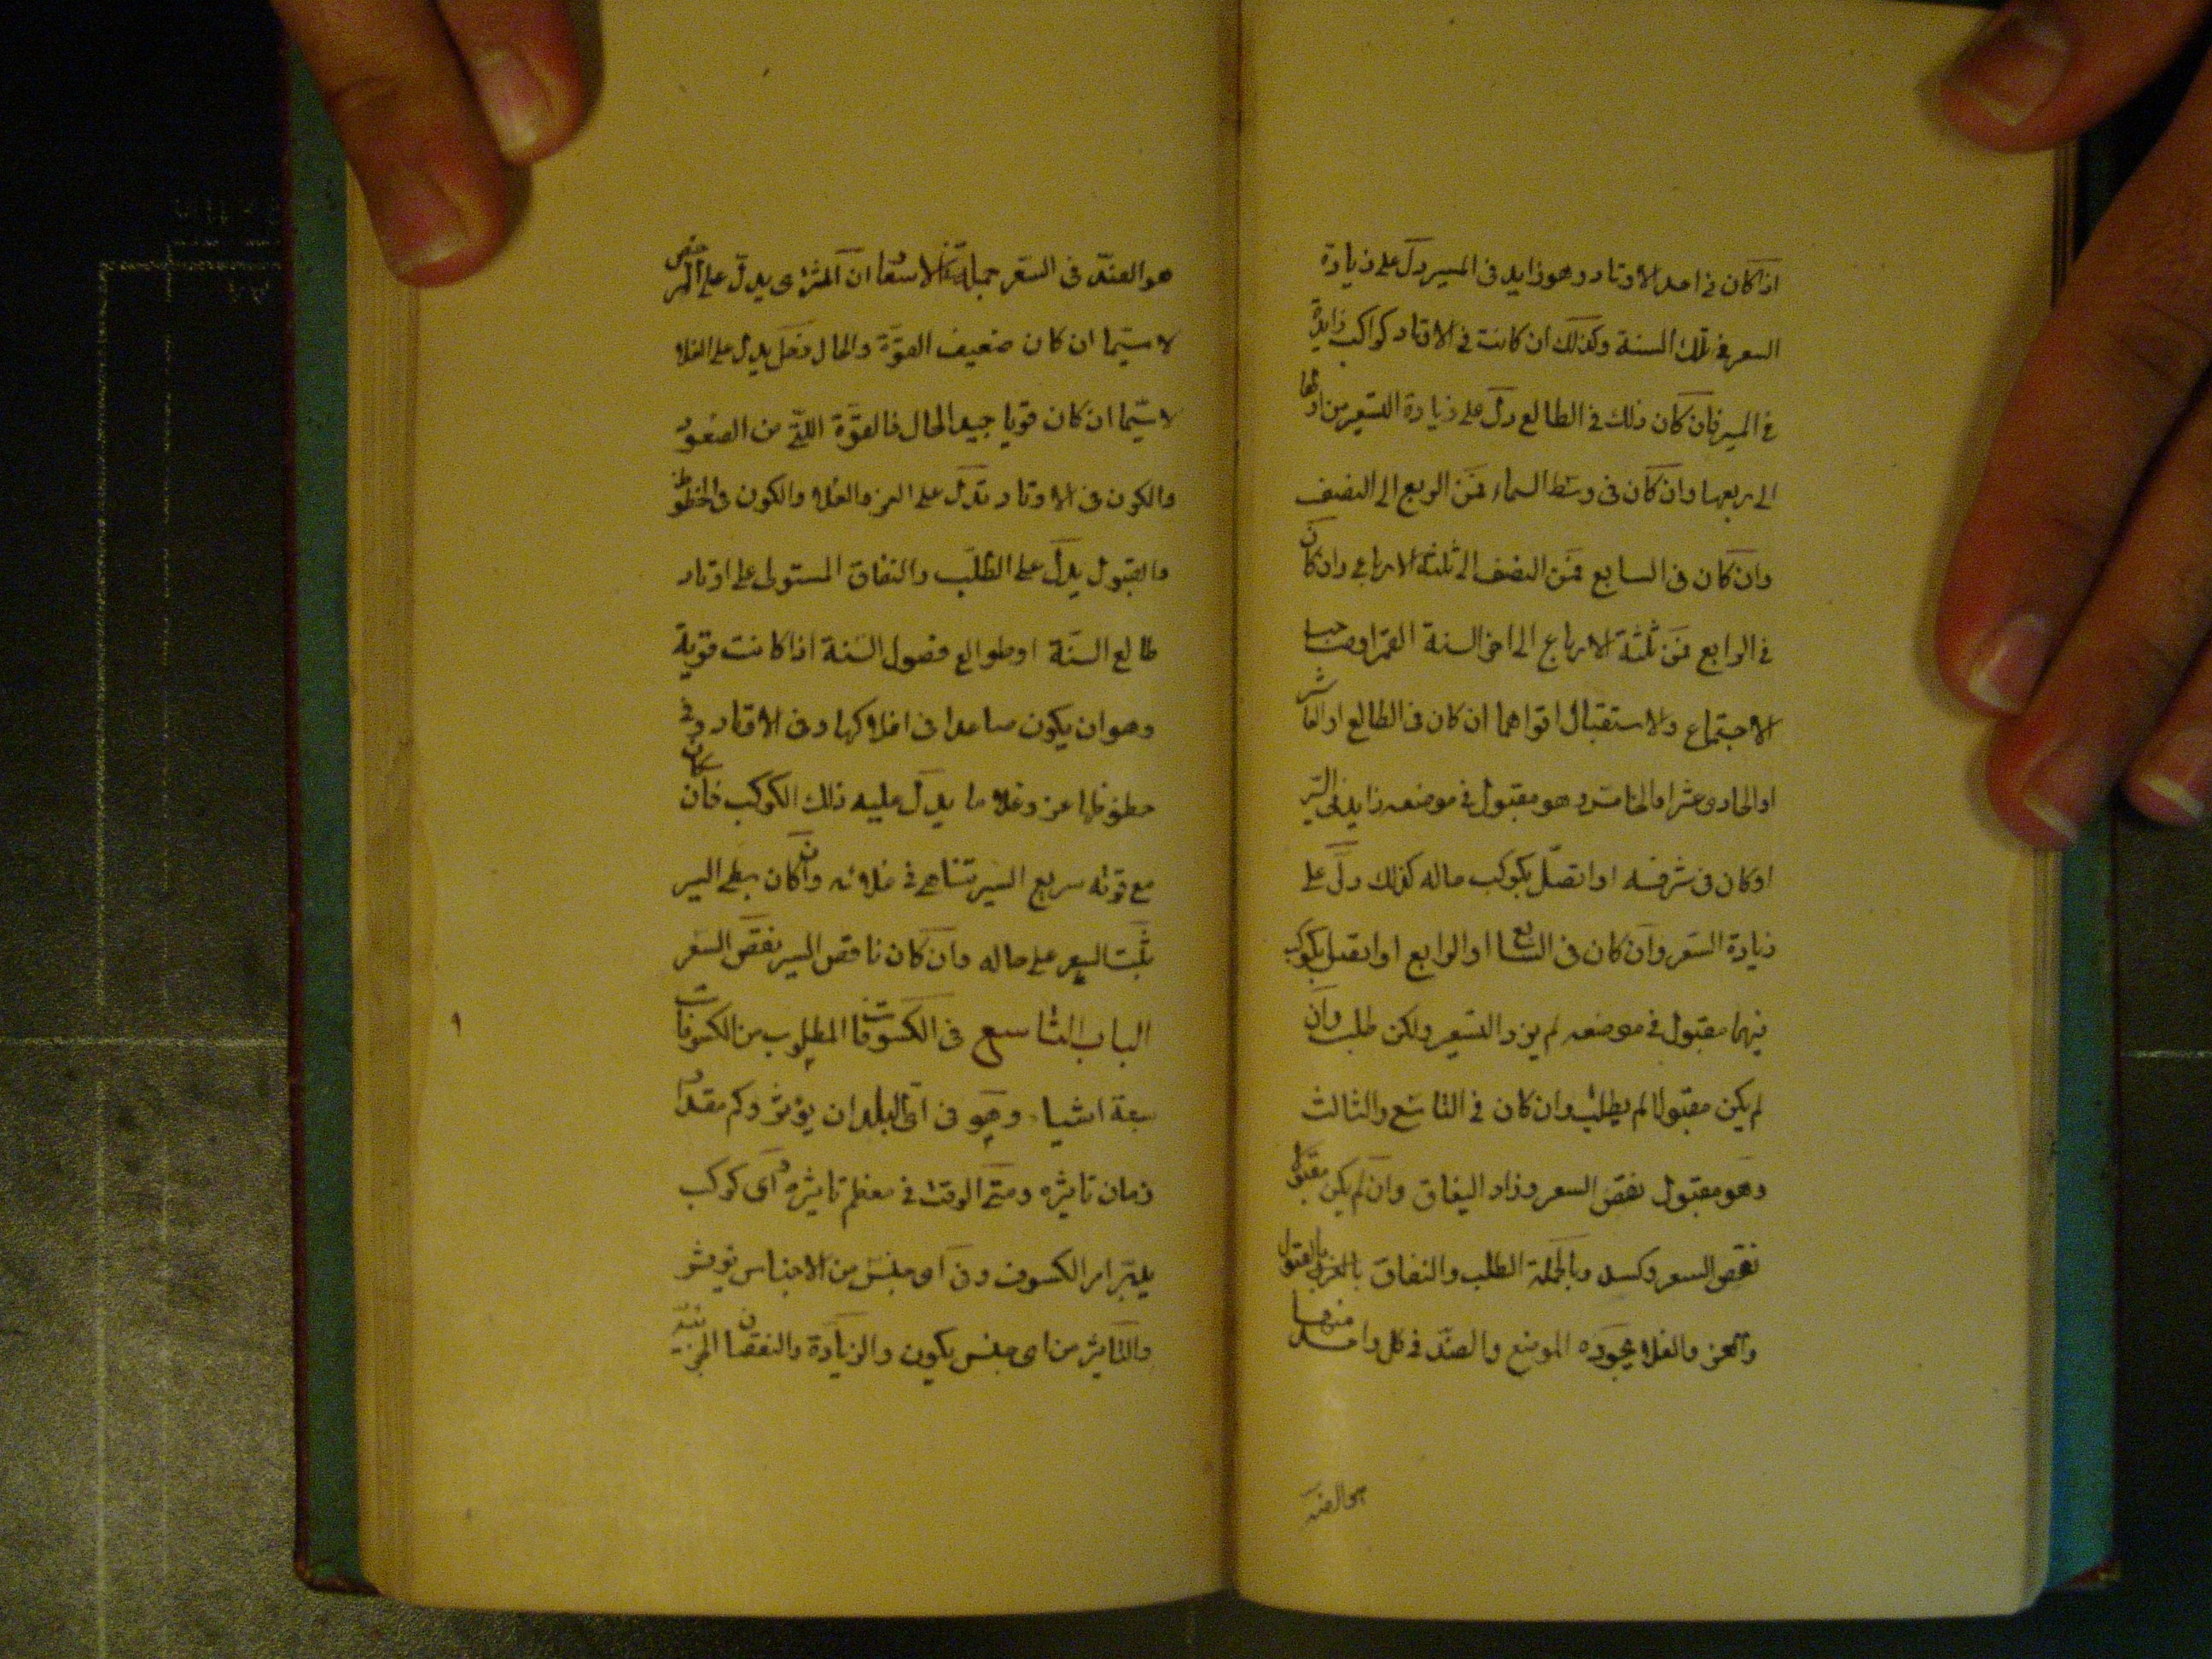 اذا كان فى احد الاوتاد وهو زايد فى المسير دل على زيادة
السعر فى تلك السنة وكذلك ان كانت فى الاوتاد كواكب زايدة
فى المسير فان كان ذلك فى الطالع دل على زيادة السعر من اولها
الى ربعها وان كان فى وسط السماء فمن الربع الى النصف
وان كان فى السابع فمن النصف الى ثلثة الارباع وان كان
فى الرابع فمن ثلثة الارباع الى اخر السنة القمر اوصاحب
الاجتماع والاستقبال اقواهما ان كان فى الطالع او العاشر
او الحادى عشر او الخامس وهو مقبول فى موضعه زايد فى السير
او كان فى شرفه او اتصل بكوكب حاله كذلك دل على
زيادة السعر وان كان فى السابع او الرابع او اتصل بكوكب
فيهما مقبول فى موضعه لم يزد السعر ولكن طلب وان
لم يكن مقبولا لم يطلب وان كان فى التاسع والثالث
وهو مقبول نقص السعر وزاد النفاق وان لم يكن مقبولا
نقص السعر وكسد وبالجملة الطلب والنفاق بالقبول
والعز والغلا بجودة الموضع والضد فى كل واحد منهما
هو الضد فى السعر جملة الاسعار ان المشترى يدل على الرخص
لا سيما ان كان ضعيف القوة والحال وزحل يدل على الغلا
لا سيما ان كان قويا جيد الحال فالقوة التى من الصعود
والكون فى الاوتاد تدل على العز والغلا والكون فى الحظوظ
والقبول يدل على الطلب والنفاق المستولى على اوتاد
طالع السنة او طوالع فصول السنة اذا كانت قوية
وهو ان يكون صاعدا فى افلاكها وفى الاوتاد وفى
حظوظها عز وغلا ما يدل عليه ذلك الكوكب فان كان
مع قوته سريع السير تناهى فى غلائه وان كان بطى السير
ثبت السعر على حاله وان كان ناقص السير نقص السعر
الباب التاسع فى الكسوفات المطلوب من الكسوفات
سبعة اشيا وهو فى اى البلدان يؤثر وكم مقدار
زمان تاثيره ومتى الوقت فى معظم تاثيره اى كوكب
يدبر امر الكسوف وفى اى جنس من الاجناس يؤثر
والتاثير من اى جنس يكون والزيادة والنقصان